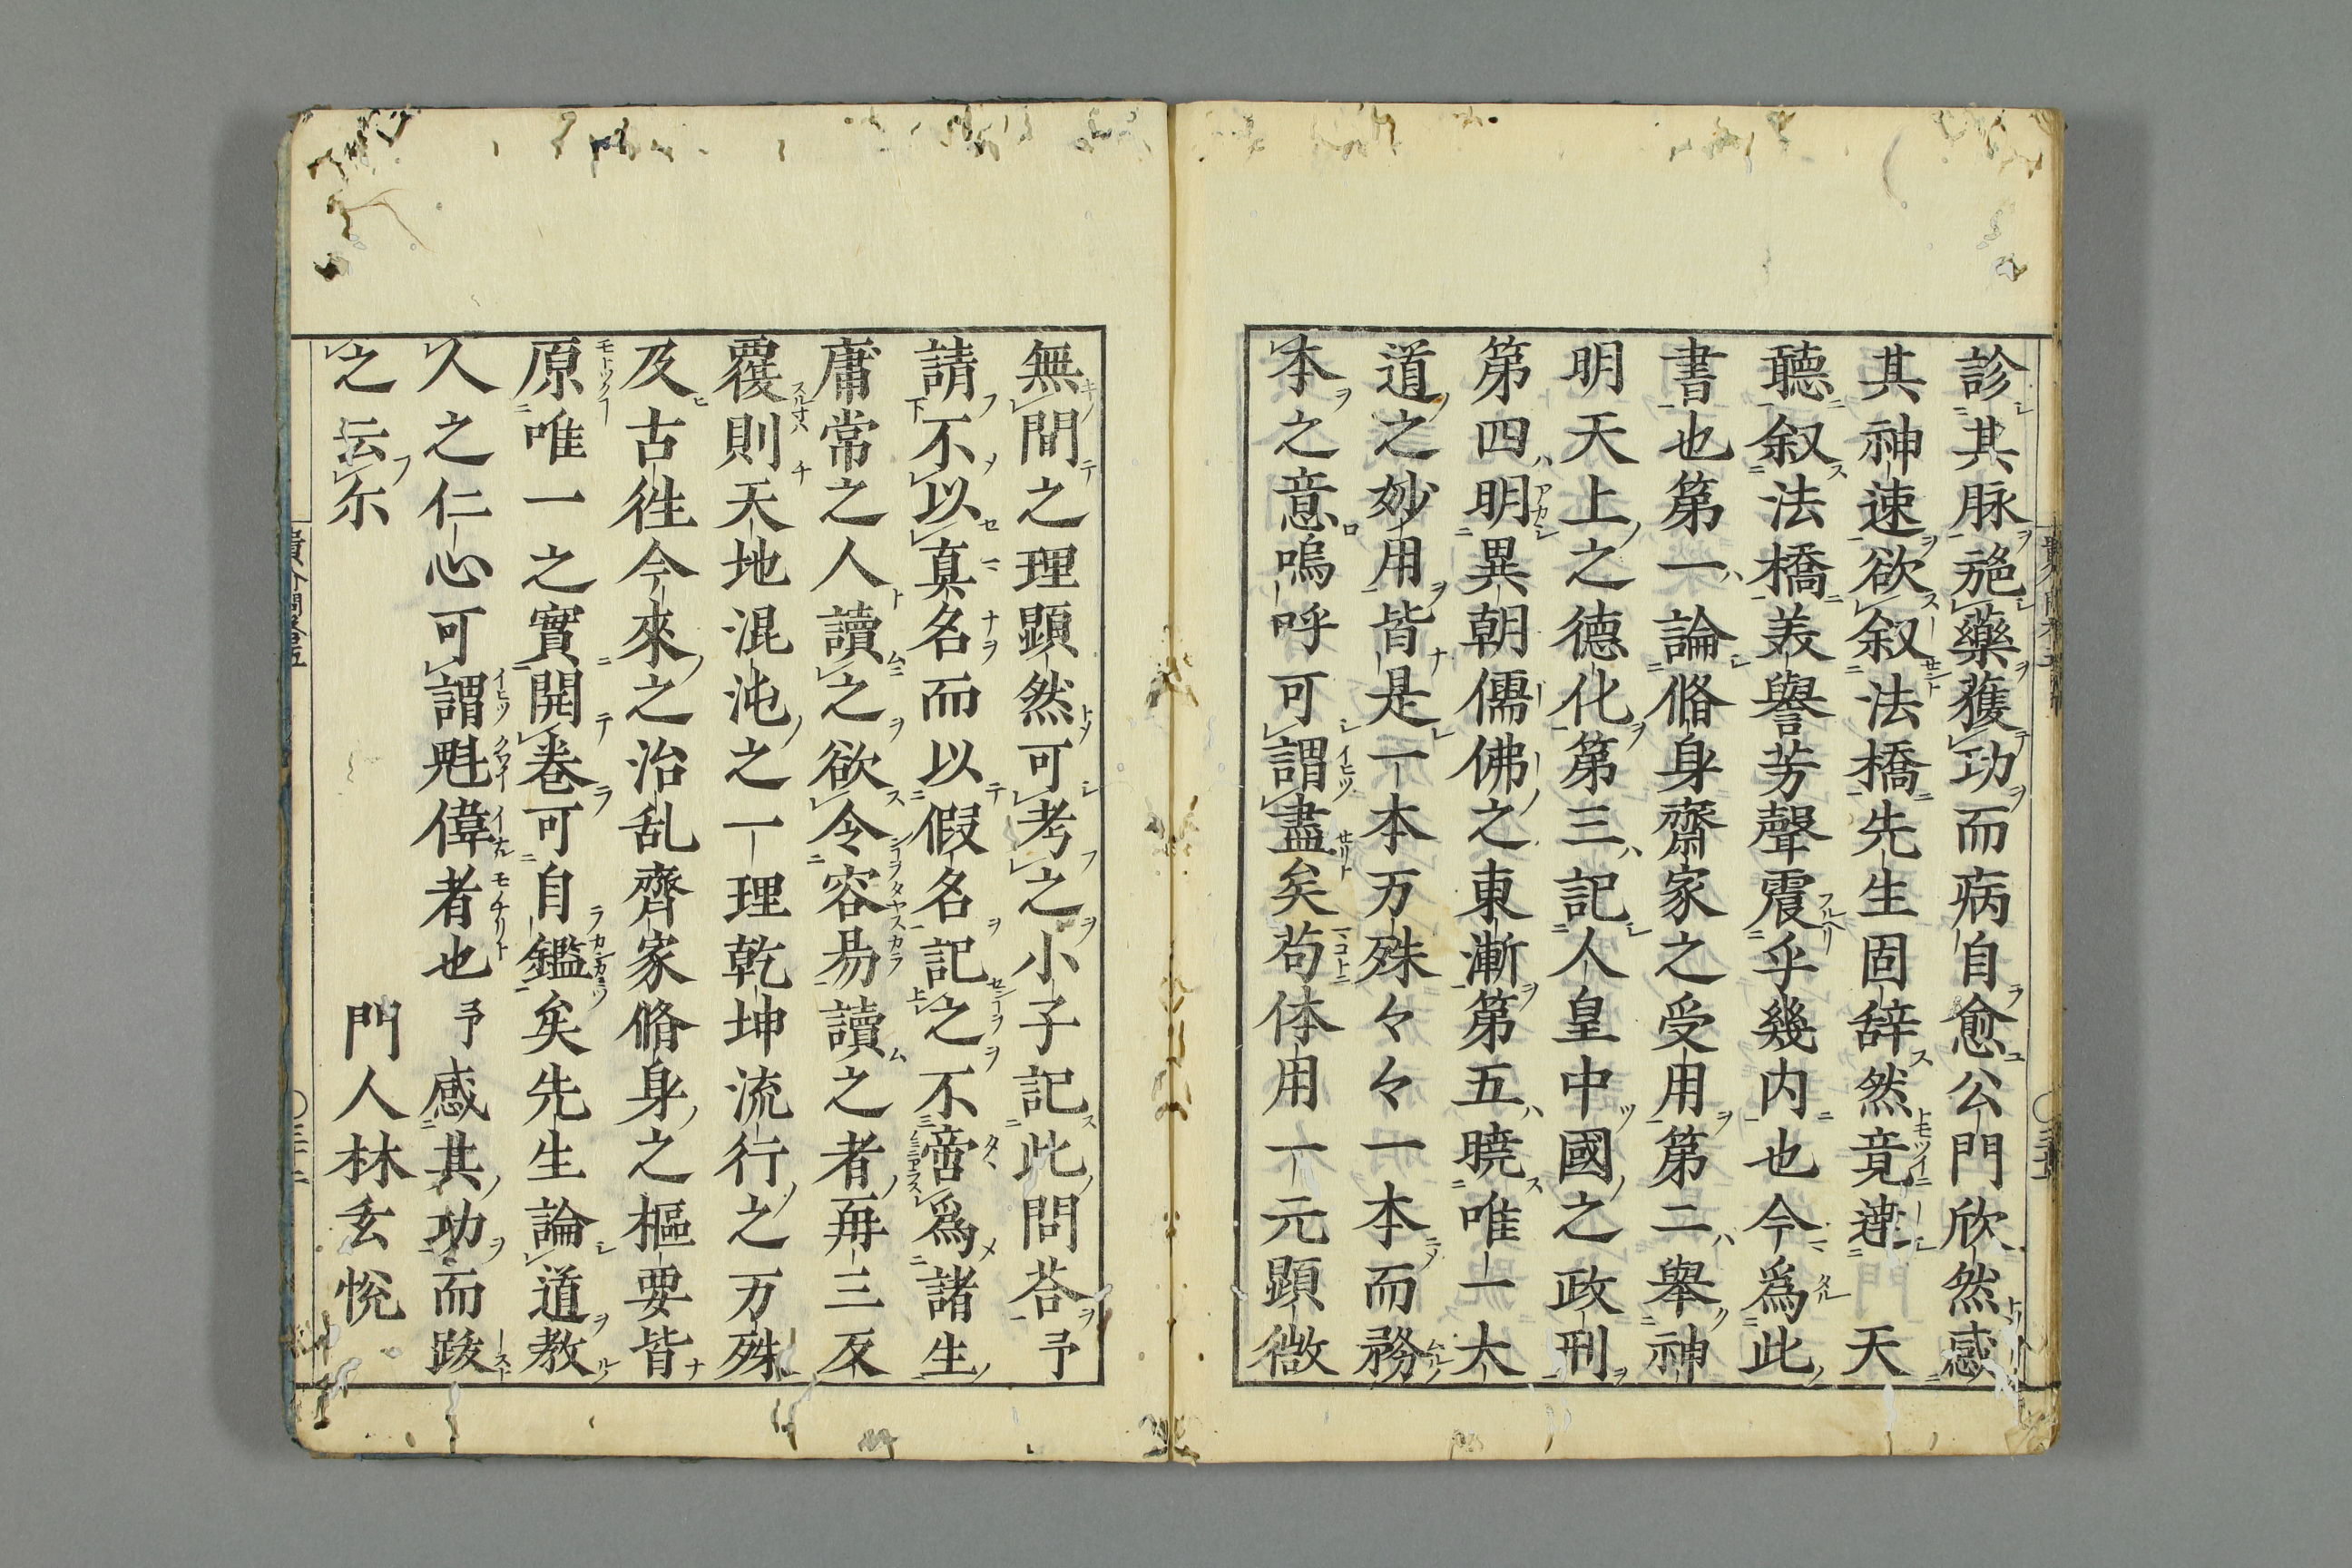 診其脉施藥獲功而病自愈公門欣然感
其神速欲叙法橋先生固辞然竟達　天
聴叙法橋美譽芳聲震乎幾内也今爲此
書也第一論脩身齋家之受用第二舉神
明天上之德化第三記人皇中國之政刑
第四明異朝儒佛之東漸第五曉唯一大
道之妙用皆是一本万殊々々一本而務
本之意嗚呼可謂盡矣苟体用一元顕微
無間之理顕然可考之小子記此問荅予
請不以真名而以假名記之不啻爲諸生
庸常之人讀之欲令容昜讀之者再三反
覆則天地混沌之一理乾坤流行之万殊
及古徃今來之治乱齊家脩身之樞要皆
原唯一之實開巻可自鑑矣先生論道教
人之仁心可謂魁偉者也予感其功而跋
之云尓　門人林玄恱